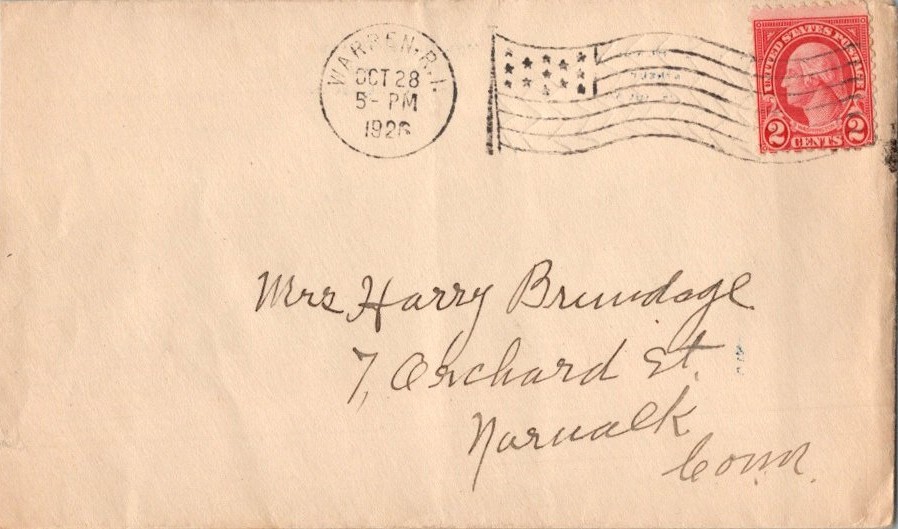 WARREN, R.I.
OCT 28
5- PM
1926
UNITED STATES POSTAGE
2 CENTS 2
Mrs Harry Brundage
7, Orchard St.
Norwalk
Conn.